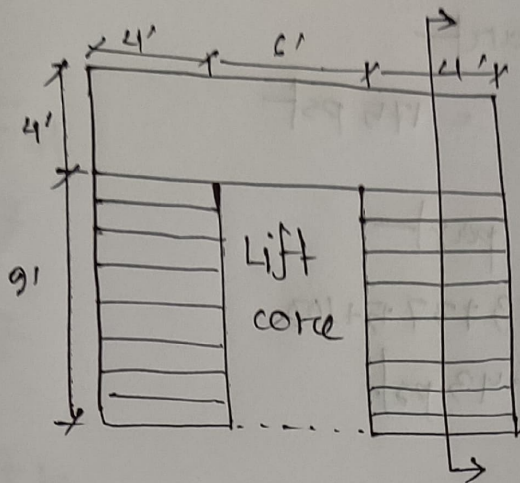 4' 6' 4'
4'
9'
Lift
core